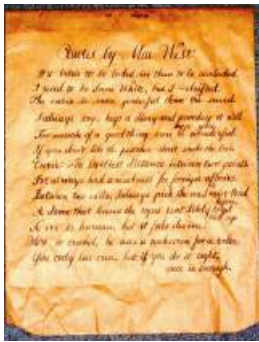 Quotes by Mae West
It's better to be looked over than to be overlooked
I used to be Snow White, but I drifted.
The curve is more powerful than the sword
I always say, keep a diary and someday it will
keep you
Too much of a good thing can be wonderful
If you don't like the peaches don't shake the tree
Curve: the loveliest distance between two points
I've always had a weakness for foreign affairs.
Between two evils, I always pick the one I never tried
before
A dame that knows the ropes isn't likely to get
tied up
To err is human, but it
He's so crooked, he uses a corkscrew for a ruler.
You only live once, but if you do it right,
once is enough.